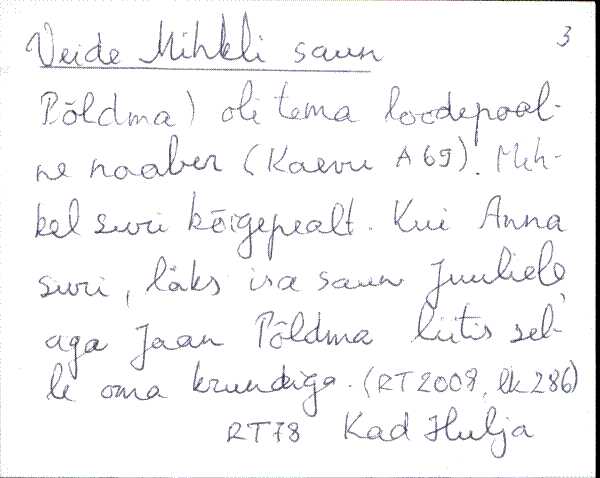 Veide Mihkli saun 3
Põldma) oli tema loodepool-
ne naaber (Kaevu A 69). Mih-
kel suri kõigepealt. Kui Anna
suri, läks isa saun Juuliele,
aga Jaan Põldma liitis sel-
le oma krundiga. (RT2008, lk 286)
RT78 Kad Hulja